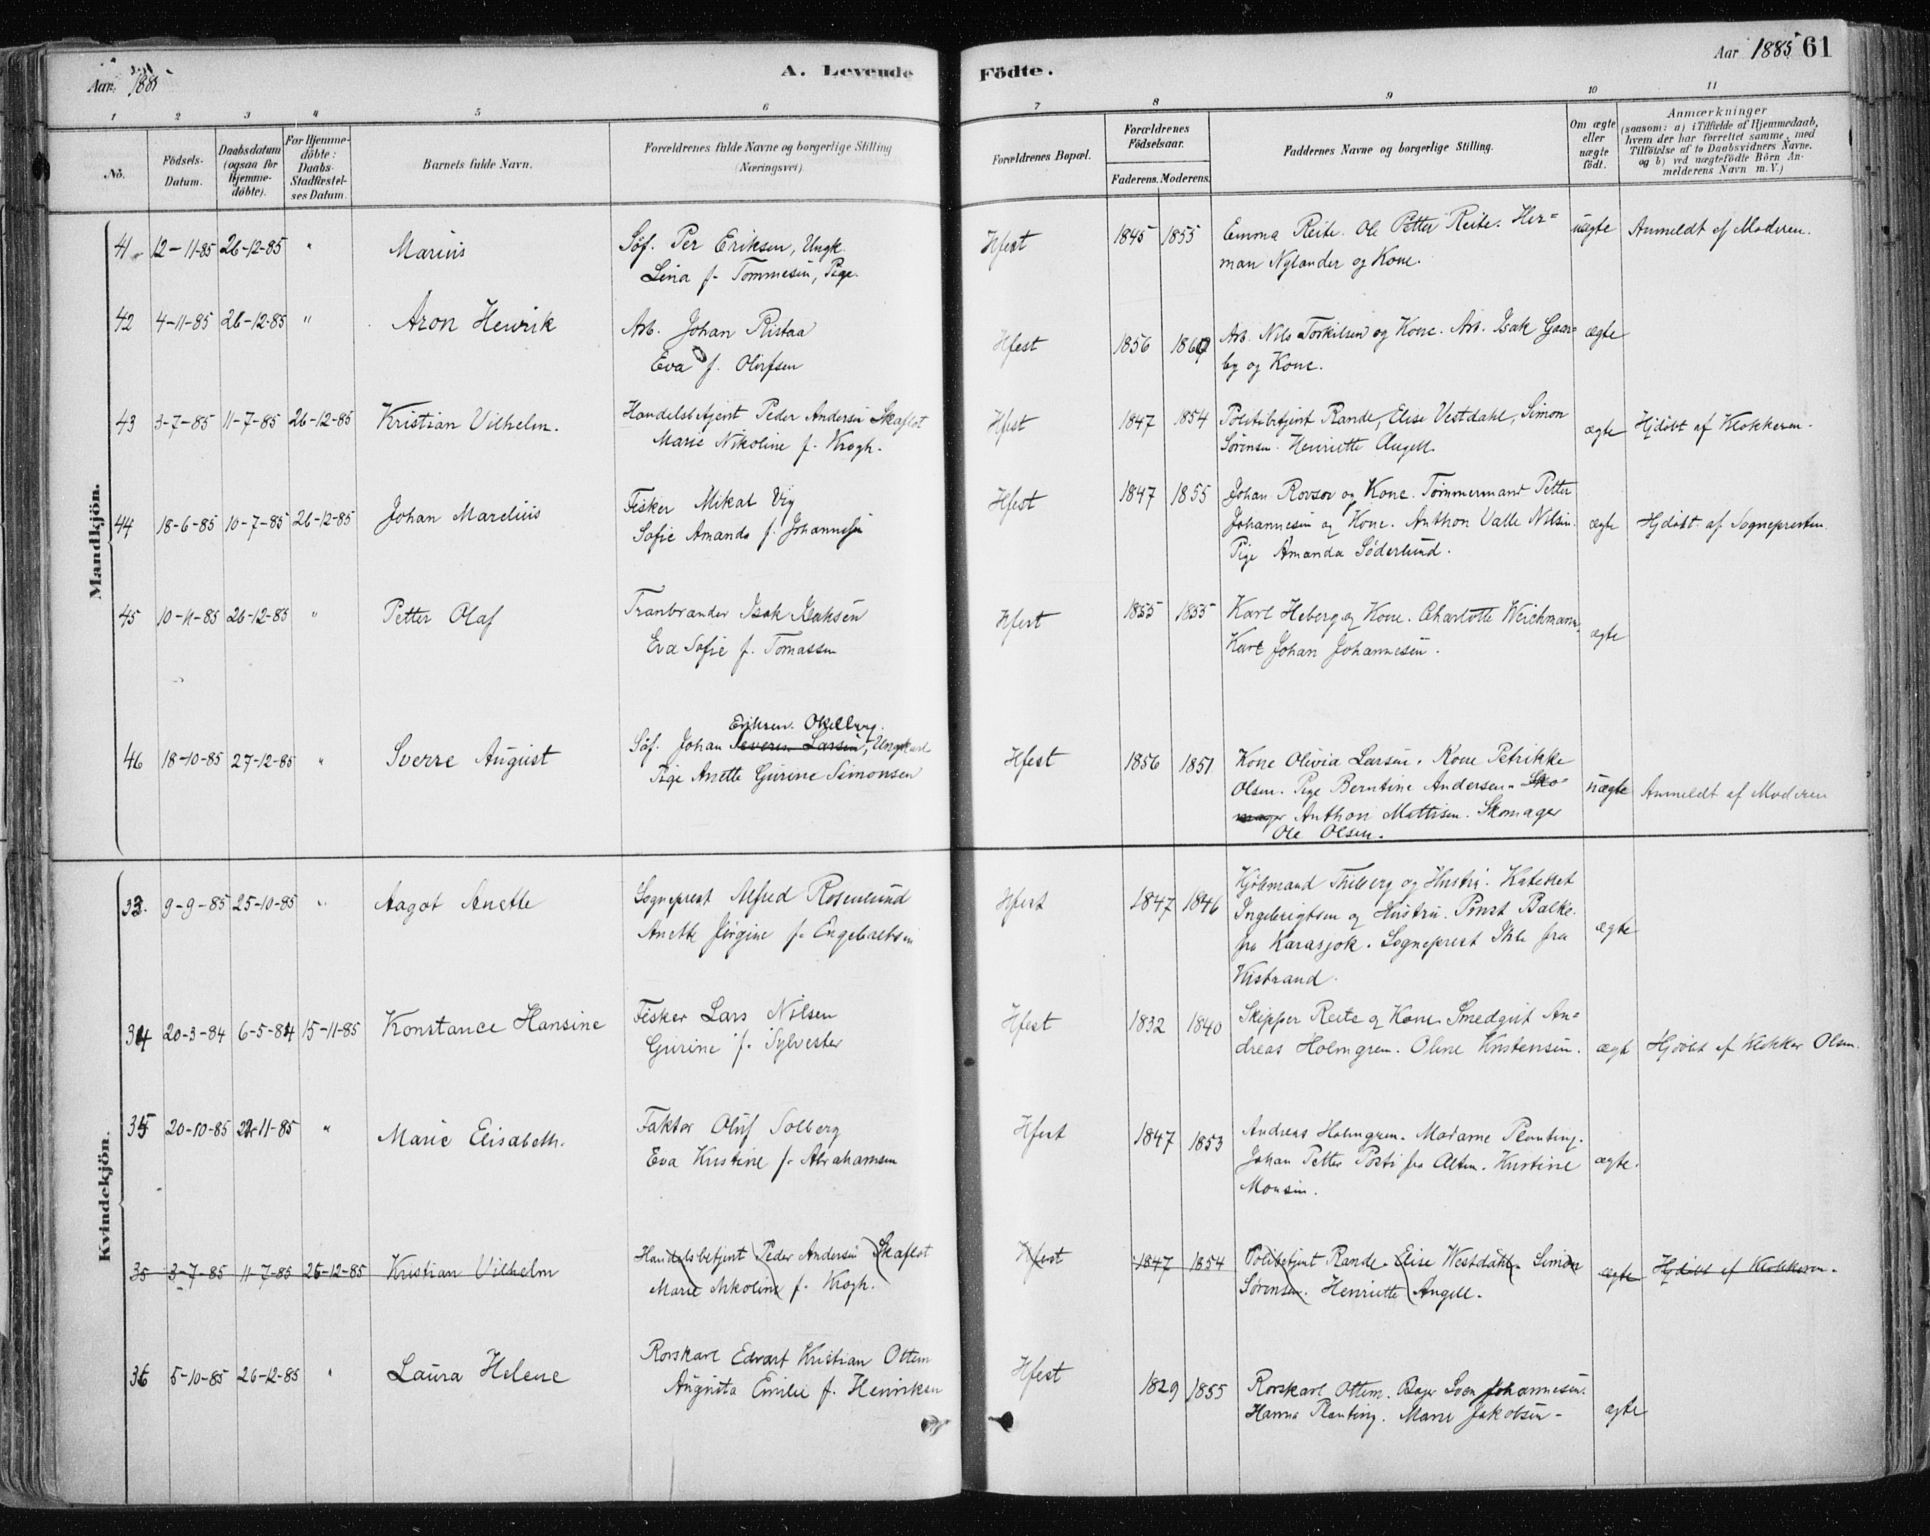 Aar 1885
A. Levende Födte.
Aar 1885 61
1 2 3 4 5 6 7 8 9 10 11
No.
Födsels-Datum.
Daabsdatum (ogsaa for Hjemme-döbte).
For Hjemme-döbte: Daabs-Stadfæstel-ses Datum.
Barnets fulde Navn.
Forældrenes fulde Navne og borgerlige Stilling (Næringsvei)
Forældrenes Bopæl.
Forældrenes Födselsaar.
Faderens. Moderens.
Faddernes Navne og borgerlige Stilling.
Om ægte eller uægte födt.
Anmærkninger
(saasom: a) i Tilfælde af Hjemmedaab, hvem der har forrettet samme, med Tilföielse af to Daabsvidners Navne. og b) ved uægtefödte Börn An-melderens Navn m. V.)
Mandkjön.
41 12-11-85 26-12-85 " Marius
Söf. Per Eriksen, Ungk.
Lina f. Tommesen, Pige.
Hfest 1845 1855
Emma Reite. Ole Petter Reite. Her-
man Nylander og Kone.
uægte Anmeldt af Moderen.
42 4-11-85 26-12-85 " Aron Henrik
Arb. Johan Ristaa
Eva f. Olufsen
Hfest 1856 1860
Arb. Nils Torkilsen og Kone. Arb. Isak
og Kone.
ægte
43 3-7-85 11-7-85 26-12-85 Kristian Vilhelm.
Handelsbetjent Peder Andersen Skaflot
Marie Nikoline f. Krogh.
Hfest 1847 1854
Politibetjent Rande, Elise Vestdahl, Simon
Sörensen. Henriette Angell.
ægte Hjdöbt af Klokkeren.
44 18-6-85 10-7-85 26-12-85 Johan Marelius
Fisker Mikal Vig
Sofie Amanda f. Johannesen
Hfest 1847 1855
Johan Rovsov og Kone. Tömmermand Petter
Johannesen og Kone. Anthon Valle Nilsen.
Pige Amanda Söderlund.
ægte Hjdöbt af Sognepresten.
45 10-11-85 26-12-85 " Petter Olaf
Tranbrænder Isak Isaksen
Eva Sofie f. Tomassen
Hfest 1855 1855
Karl Heberg og Kone. Charlotte Weichmann.
Karl Johan Johannesen.
ægte
46 18-10-85 27-12-85 " Sverre August
Eriksen Okelberg.
Söf. Johan Severin Larsen, Ungkarl
Pige Anette Gurine Simonsen
Hfest 1856 1851
Kone Olivia Larsen. Kone Petrikke
Olsen. Pige Berntine Andersen. Sko-
mager Anthon Mattisen. Skomager
Ole Olsen.
uægte Anmeldt af Moderen
Kvindekjön.
33. 9-9-85 25-10-85 " Aagot Anette
Sogneprest Alfred Rosenlund
Anette Jörgine f. Engebretsen
Hfest 1847 1846
Kjöbmand Friberg og Hustru. Kateket
Ingebrigtsen og Hustru. Prost Balke.
fra Karasjok. Sogneprest Ihle fra
Kistrand.
ægte
34 20-3-84 6-5-84 15-11-85 Konstance Hansine
Fisker Lars Nilsen
Gurine f. Sylvester
Hfest 1832 1840
Skipper Reite og Kone. Smedgut An-
dreas Holmgren. Oline Kristensen.
ægt Hjdöbt af Klokker Olsen.
35 20-10-85 22-11-85 " Marie Elisabeth.
Faktor Oluf Solberg
Eva Kristine f. Abrahamsen
Hfest 1847 1853
Andreas Holmgren. Madame Planting.
Johan Petter Posti fra Alten. Kristine
Monsen.
ægte.
35 3-7-85 11-7-85 26-12-85 Kristian Vilhelm
Handelsbetjent Peder Andersen Skaflot
Marie Nikoline f. Krogh.
Hfest 1847 1854
Politibetjent Rande. Elise Westdahl. Simon
Sörensen. Henriette Angell.
ægte Hjdöbt af Klokkeren.
36 5-10-85 26-12-85 " Laura Helene
Rorskarl Edvart Kristian Ottem
Augusta Emilie f. Henriksen
Hfest 1829 1855
Rorskarl Ottem. Bager Sven Johannesen.
Hanna Planting. Marie Jakobsen.
ægte